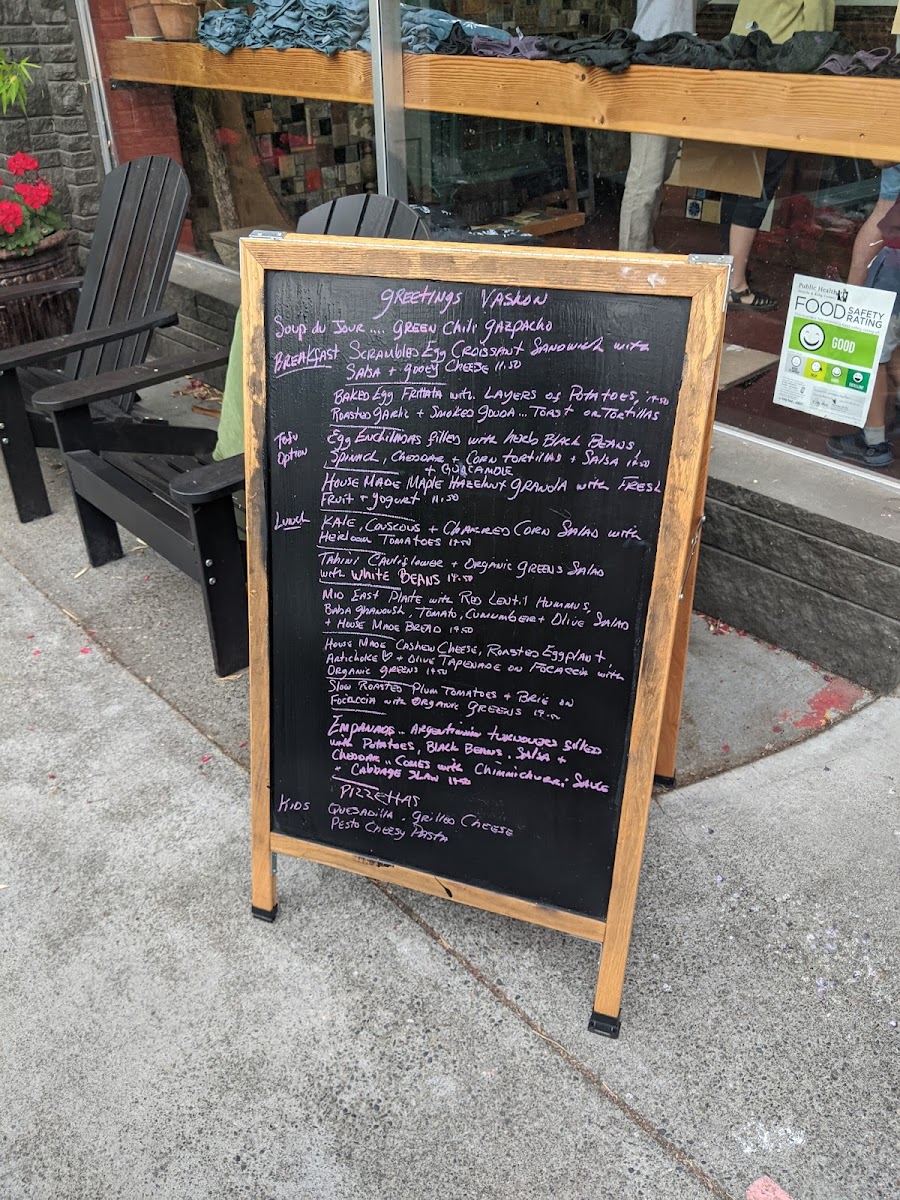 GREETINGS VASHON
SOUP DU JOUR .... GREEN CHILI GAZPACHO
BREAKFAST SCRAMBLED EGG CROISSANT SANDWICH with
SALSA + GOOEY CHEESE 11.50
BAKED EGG FRITTATA with LAYERS of POTATOES,
ROASTED GARLIC + SMOKED GOUDA ... TOAST OR TORTILLAS
Tofu Option
EGG ENCHILADAS filled with herb BLACK BEANS
SPINACH, CHEDDAR + CORN TORTILLAS + SALSA
+ GUACAMOLE
HOUSE MADE MAPLE HAZELNUT GRANOLA with FRESH
FRUIT + YOGURT 11.50
Lunch KALE, COUSCOUS + CHARRED CORN SALAD with
HEIRLOOM TOMATOES
TAHINI CAULIFLOWER + ORGANIC GREENS SALAD
with WHITE BEANS
MID EAST PLATE with RED LENTIL HUMMUS,
BABA GHANOUSH, TOMATO, CUCUMBER + OLIVE SALAD
+ HOUSE MADE BREAD
HOUSE MADE CASHEW CHEESE, ROASTED EGGPLANT +
ARTICHOKE ♡ + OLIVE TAPENADE ON FOCACCIA with
ORGANIC GREENS
SLOW ROASTED PLUM TOMATOES + BRIE ON
FOCACCIA with ORGANIC GREENS
EMPANADAS .. ARGENTINIAN TURNOVERS filled
with POTATOES, BLACK BEANS, SALSA +
CHEDDAR .. COMES with CHIMMICHURRI SAUCE
+ CABBAGE SLAW
PIZZETTAS
KIDS QUESADILLA . GRILLED CHEESE
PESTO CHEESY PASTA
Public Health
FOOD SAFETY RATING
GOOD